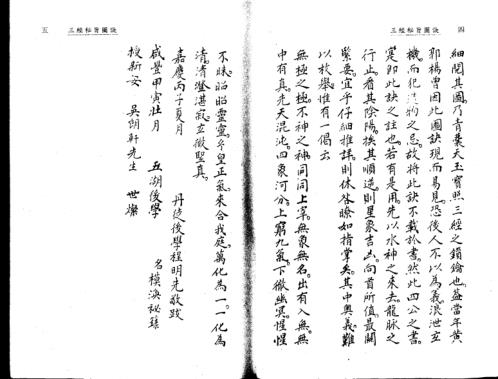 四 三經秘旨圖訣
細閱其圖乃青囊天玉寶照三經之鎖鑰也蓋當年黃
郭楊曾因此圖訣現而易見恐後人不以為義浪泄玄
機而犯造物之忌故將此訣不載於書然此四公之書
是即此訣之註也若有是用先以水神之來去龍脈之
行止看其陰陽挨其順逆則星象吉凶向首所值最關
緊要宜乎仔細推詳則休咎瞭如指掌矣其中奧義難
以枚舉惟有一偈云
無極之極不神之神同同上罕無象無名出有入無無
中有真先天混沌四象河分上窮九氣下徹幽冥惺惺
五 三經秘旨圖訣
不昧昭昭靈靈至皇正氣來合我庭萬化為一一化為
清清澄湛寂立徹聖真
嘉慶丙子夏月 丹徒後學程明先敬跋
咸豐甲寅壯月 五湖後學 名模漁秘錄
授新安 吳朗軒先生 世燦